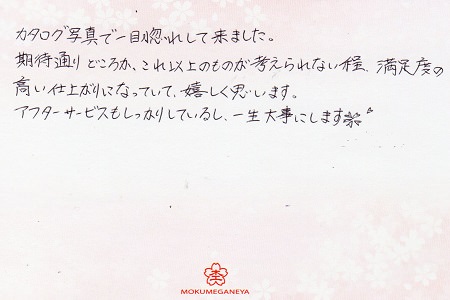 カタログ写真で一目惚れして来ました。
期待通りどころか、これ以上のものが考えられない程、満足度の
高い仕上がりになっていて、嬉しく思います。
アフターサービスもしっかりしているし、一生大事にします
MOKUMEGANEYA